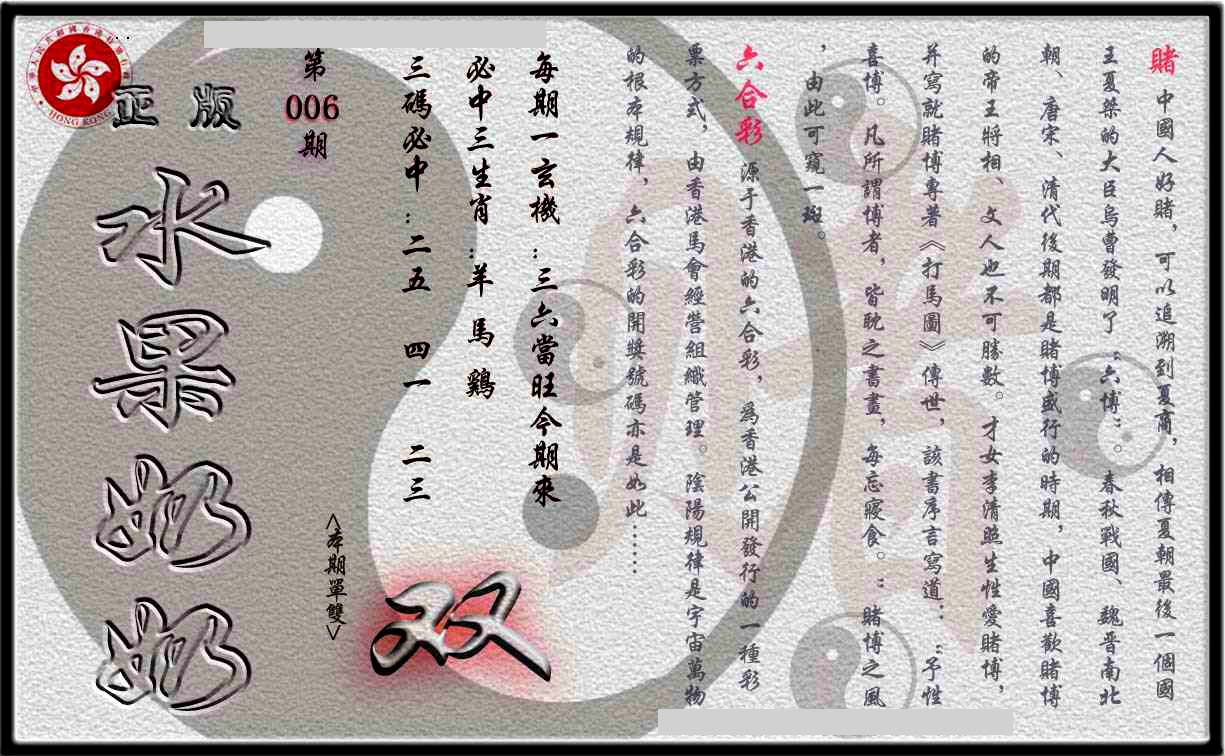 賭 中國人好賭，可以追溯到夏商，相傳夏朝最後一個國
王夏桀的大臣烏曹發明了“六博”。春秋戰國、魏晋南北
朝、唐宋、清代後期都是賭博盛行的時期，中國喜歡賭博
的帝王將相、文人也不可勝數。才女李清照生性愛賭博，
并寫就賭博專著《打馬圖》傳世，該書序言寫道：“予性
喜博。凡所謂博者，皆耽之書畫，每忘寢食。：賭博之風
，由此可窺一斑。
六合彩 源于香港的六合彩，為香港公開發行的一種彩
票方式，由香港馬會經營組織管理。陰陽規律是宇宙萬物
的根本規律，六合彩的開獎號碼亦是如此……
每期一玄機：三六當旺今期來
必中三生肖：羊 馬 鷄
三碼必中：二五 四一 二三
第
006
期
<本期單雙>
双
正版
水果奶奶
HONG KONG